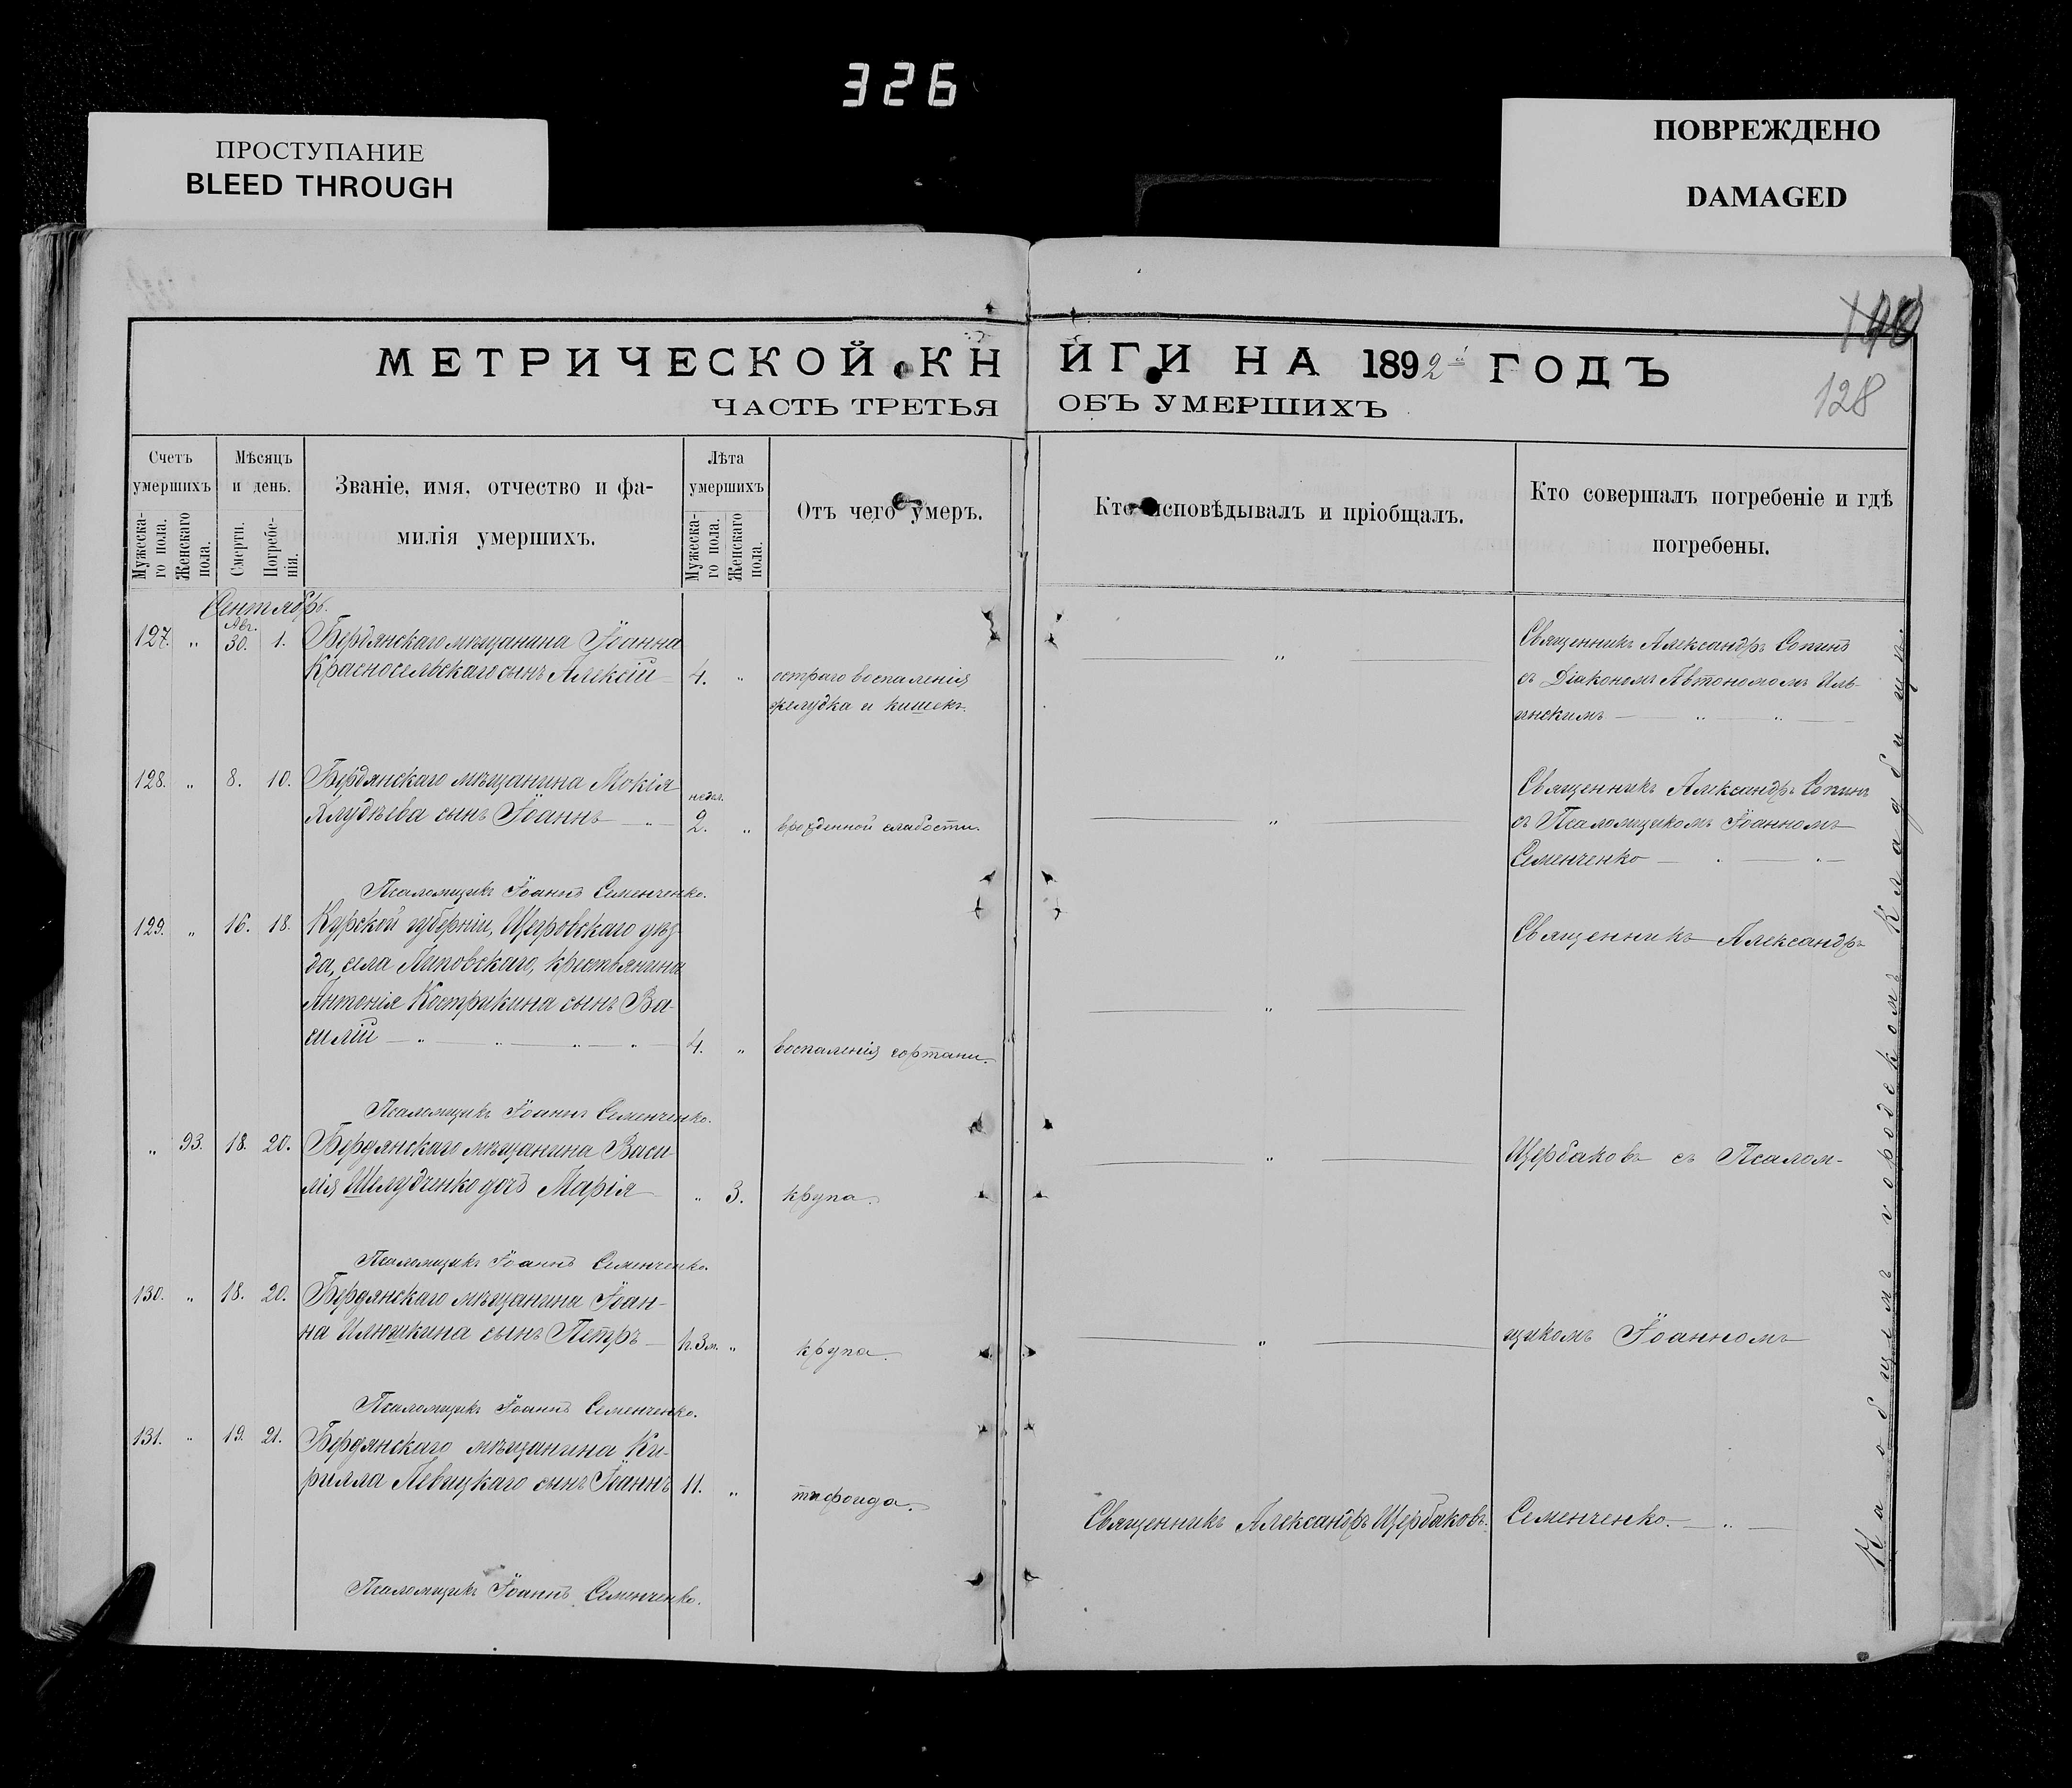 326
ПРОСТУПАНИЕ
BLEED THROUGH
ПОВРЕЖДЕНО
DAMAGED
128
МЕТРИЧЕСКОЙ КНИГИ НА 1892й ГОДЪ
ЧАСТЬ ТРЕТЬЯ ОБЪ УМЕРШИХЪ
Счетъ умершихъ
Мужеска-
го пола.
Женскаго
пола.
Мѣсяцъ
и день.
Смерти.
Погребе-
нія.
Званіе, имя, отчество и фа-
милія умершихъ.
Лѣта
умершихъ
Мужеска-
го пола.
Женскаго
пола.
Отъ чего умеръ.
Кто исповѣдывалъ и пріобщалъ.
Кто совершалъ погребеніе и гдѣ
погребены.
Сентябрь.
Авг.
127. „ 30. 1. Бердянскаго мѣщанина Іоанна
Красносельскаго сынъ Алексій 4. „ остраго воспаленія
желудка и кишекъ.
„
Священникъ Александръ Сопинъ
съ Діакономъ Автономомъ Иль-
инскимъ — „ — „ —
128. „ 8. 10. Бердянскаго мѣщанина Мокія
Хлудѣева сынъ Іоаннъ — „ — недѣл. 2. „ врожденной слабости.
„
Священникъ Александръ Сопинъ
съ Псаломщикомъ Іоанномъ
Семенченко — „ — „ —
Псаломщикъ Іоаннъ Семенченко.
129. „ 16. 18. Курской губерніи, Щегровскаго уѣз-
да, села Липовскаго, крестьянина
Антонія Кострикина сынъ Ва-
силій — „ — „ — „ — „ — 4. „ воспаленія гортани.
„
Священникъ Александръ
Псаломщикъ Іоаннъ Семенченко.
„ 93. 18. 20. Бердянскаго мѣщанина Васи
лія Шелудченко дочь Марія „ 3. крупа.
„
Щербаковъ съ Псалом-
Псаломщикъ Іоаннъ Семенченко.
130. „ 18. 20. Бердянскаго мѣщанина Іоан-
на Илюшкина сынъ Петръ — 3 м. „ крупа.
„
щикомъ Іоанномъ
Псаломщикъ Іоаннъ Семенченко.
131. „ 19. 21. Бердянскаго мѣщанина Ки-
рилла Левицкаго сынъ Іоаннъ 11. „ тифоида.
Священникъ Александръ Щербаковъ.
Семенченко. — „ —
Псаломщикъ Іоаннъ Семенченко.
На общемъ городскомъ кладбищѣ.